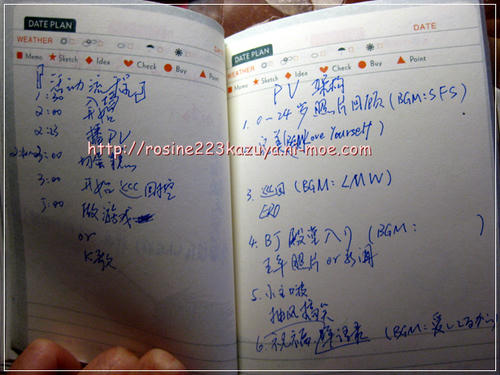 DATE PLAN
WEATHER
DATE
Memo Sketch Idea Check Buy Point
『活动流程』
1:30 入场
2:00 开始
2:25 播PV
3:00
3:00 开始巡回控
5:00 做游戏
or
K歌
DATE PLAN
DATE
WEATHER
Memo Sketch Idea Check Buy Point
PV 架构
1. 0-24岁照片回放 (BGM: SFS)
Love Yourself)
3. 巡回 (BGM: LMW)
4. BJ殿堂入り (BGM: )
照片 or 新闻
5.
抽风搞笑
6. 祝福 (BGM: 愛してるから)
http://rosine223kazuya.ni-moe.com